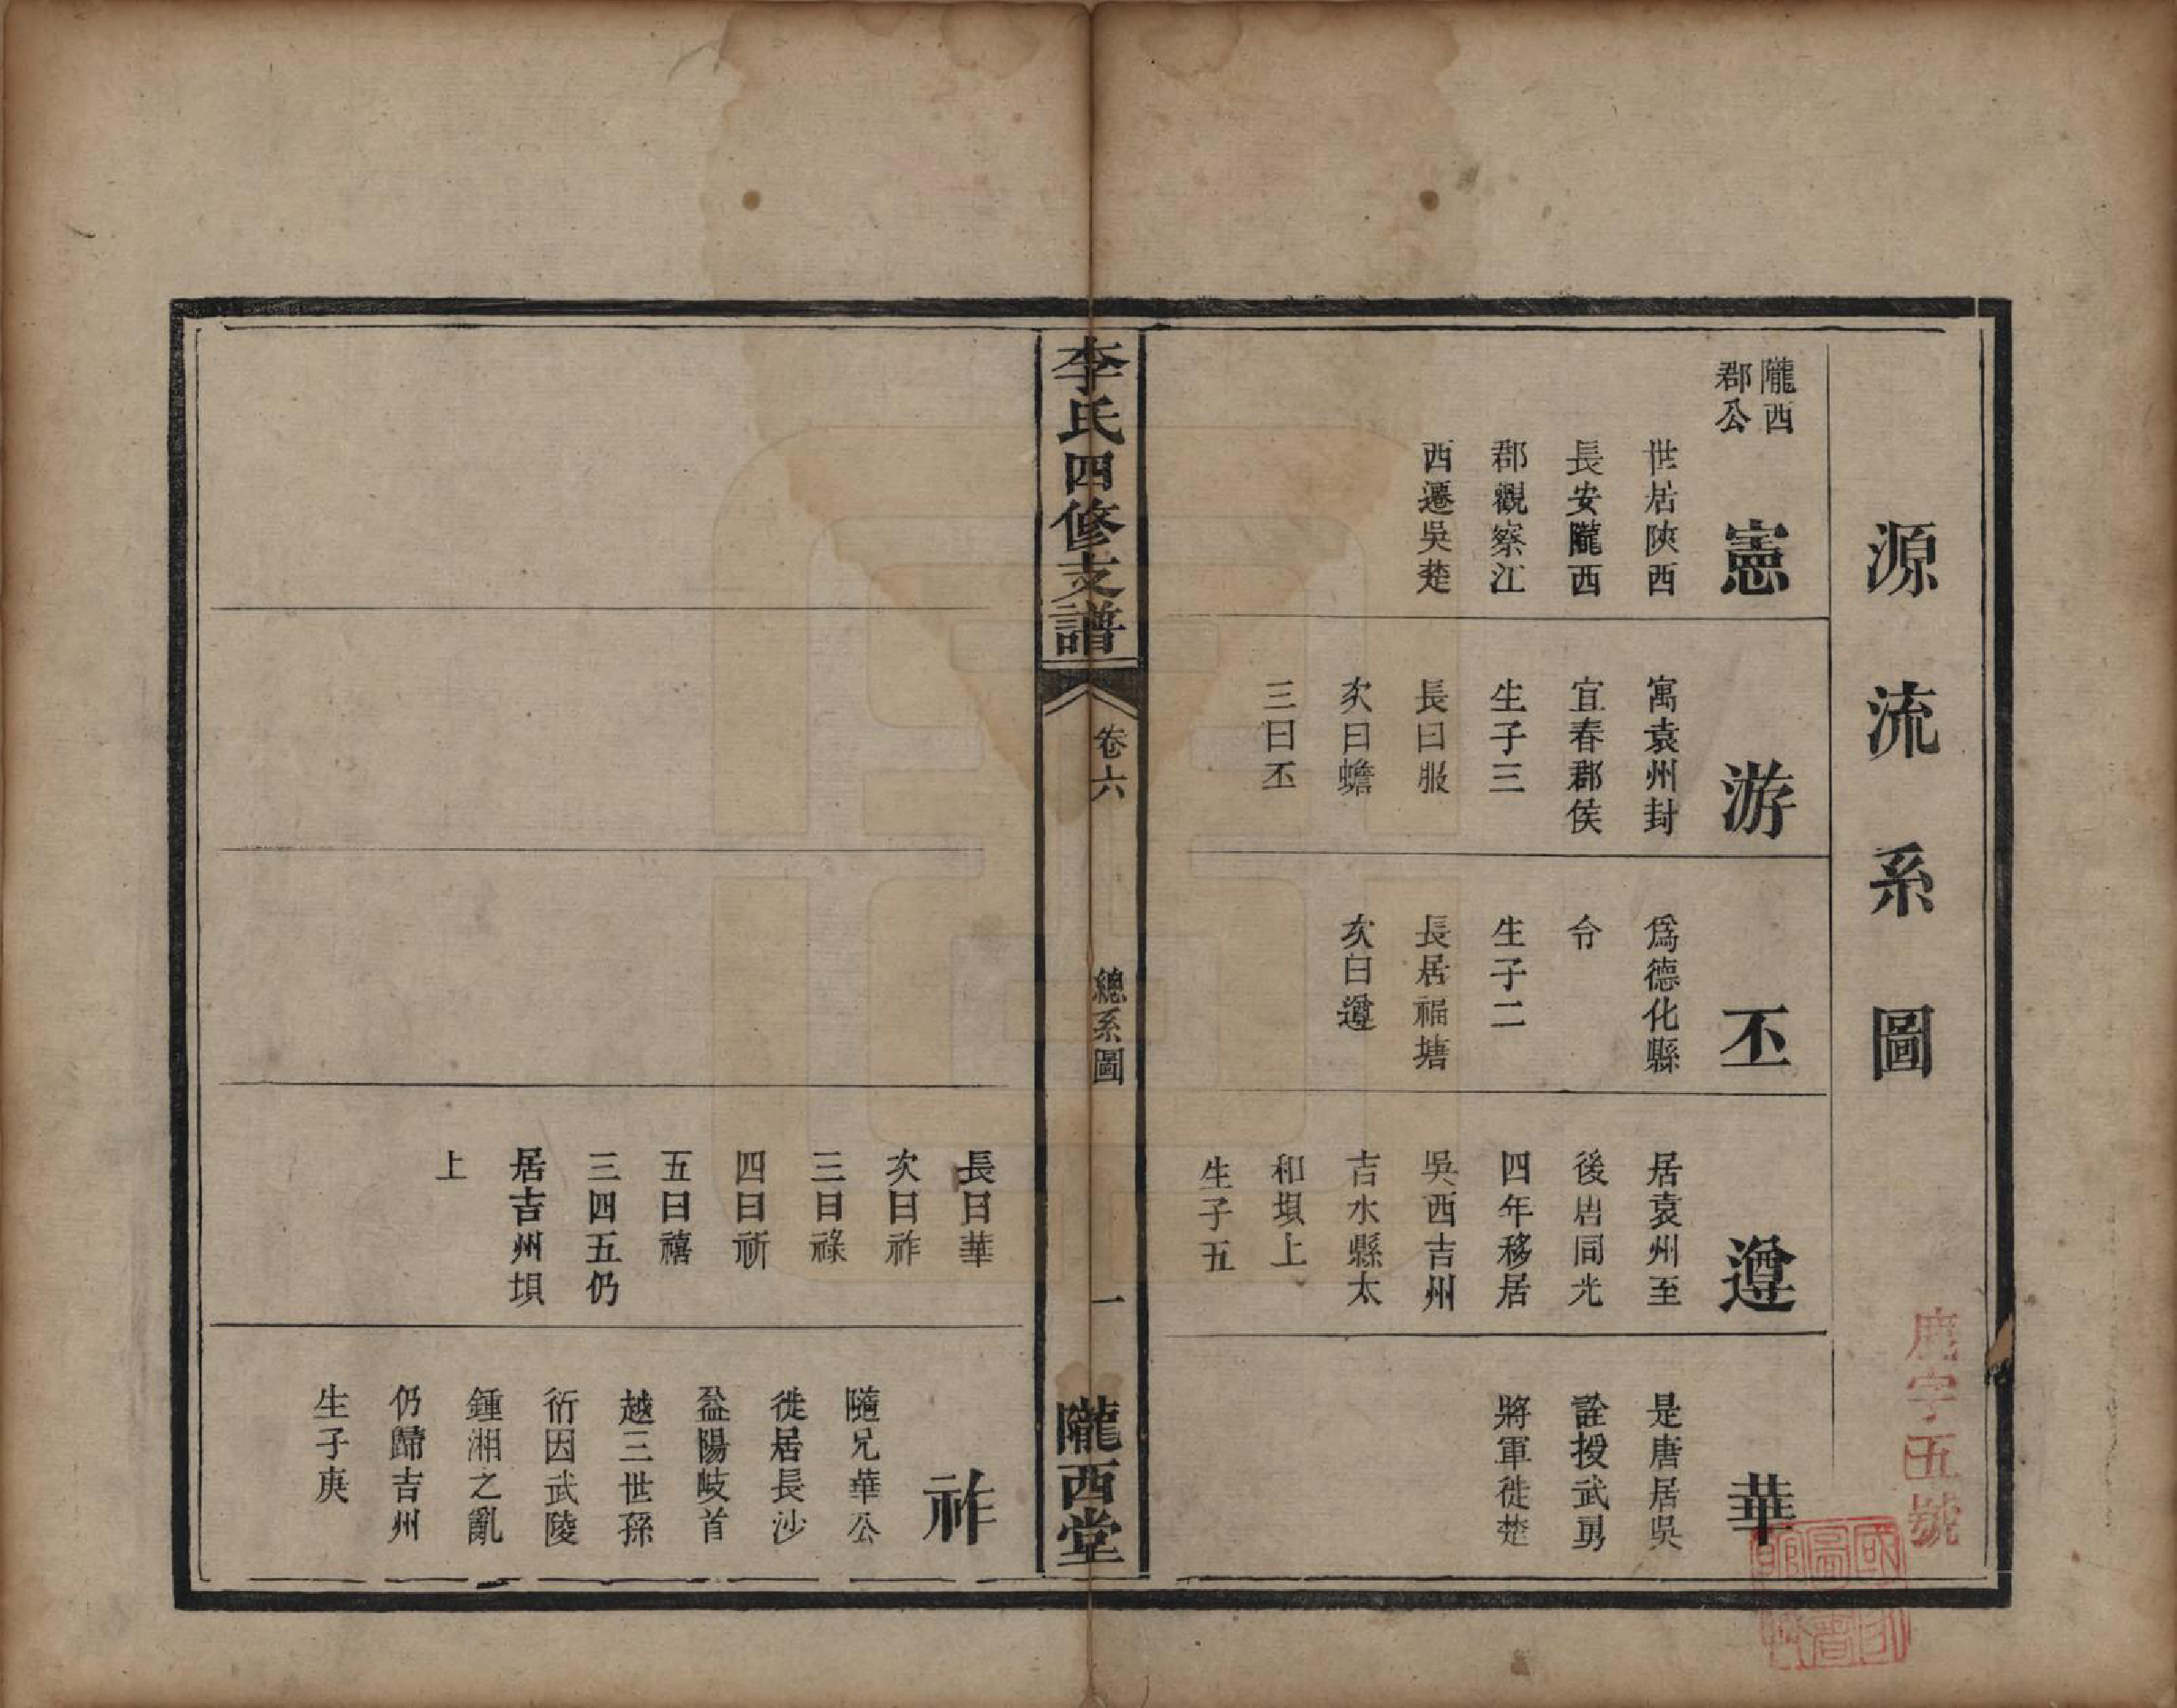 源流系圖
隴西
郡公
憲
世居陝西
長安隴西
郡觀察江
西遷吳楚
游
寓袁州封
宜春郡侯
生子三
長曰服
次曰蟾
三曰丕
丕
爲德化縣
令
生子二
長居福塘
次曰遵
遵
居袁州至
後唐同光
四年移居
吳西吉州
吉水縣太
和垻上
生子五
華
是唐居吳
詮授武勇
將軍徙楚
鹿字五號
李氏四修支譜
卷六
總系圖
一
隴西堂
長曰華
次曰祚
三曰祿
四曰祈
五曰禧
三四五仍
居吉州垻
上
祚
隨兄華公
徙居長沙
益陽岐首
越三世孫
衍因武陵
鍾湘之亂
仍歸吉州
生子庚